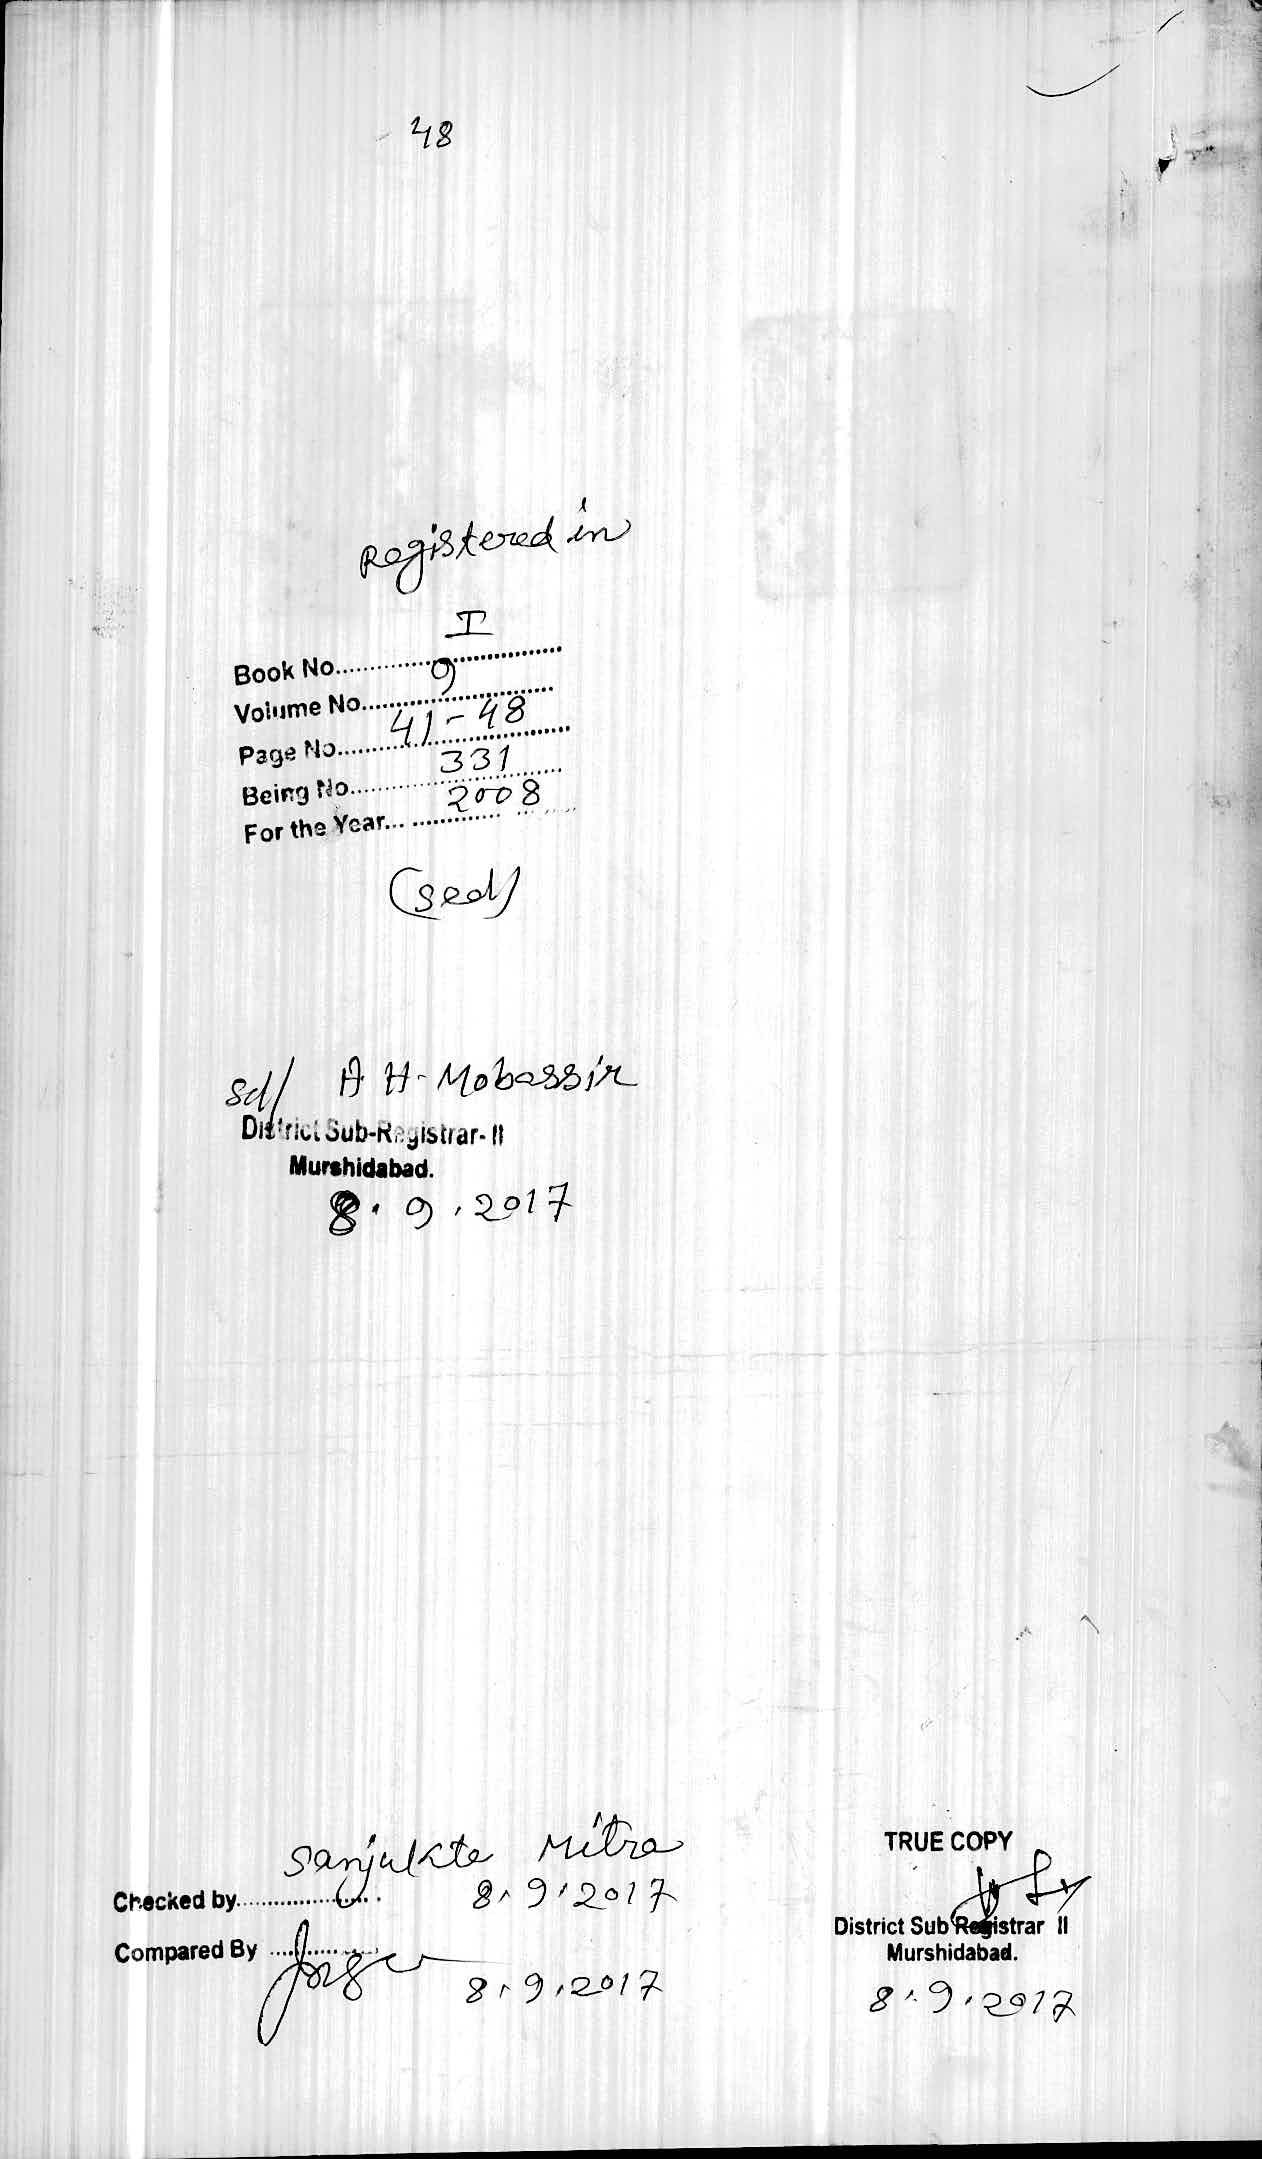 48
Registered in
I
Book No....................
9
Volume No....................
41-48
Page No....................
331
Being No....................
2008
For the Year....................
(Sed/
Sd/ A H. Mobassir
District Sub-Registrar-II
Murshidabad.
8.9.2017
Sanjukta Mitra
Checked by.................... 8.9.2017
Compared By ..........
8.9.2017
TRUE COPY
District Sub Registrar II
Murshidabad.
8.9.2017